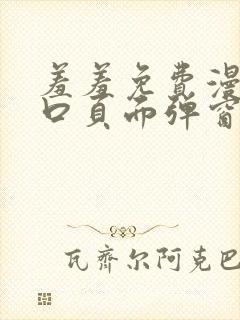 羞羞免费漫
口页而弹窗
瓦齐尔阿克巴